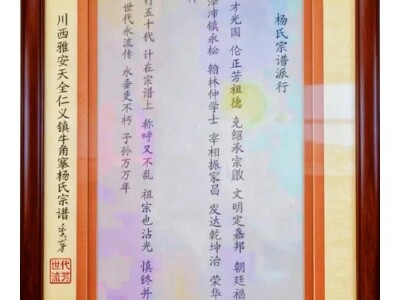 杨氏宗谱派行
才光国 伦正芳祖德 克绍承宗啟 文明定嘉邦 朝廷福
沛镇永松 翰林仲学士 宰相振家昌 发达乾坤治 荣华
行五十代 计在宗谱上 称呼又不乱 祖宗也沾光 慎终并
世代永流传 永垂更不朽 子孙万万年
川西雅安天全仁义镇牛角寨杨氏宗谱
世代流芳